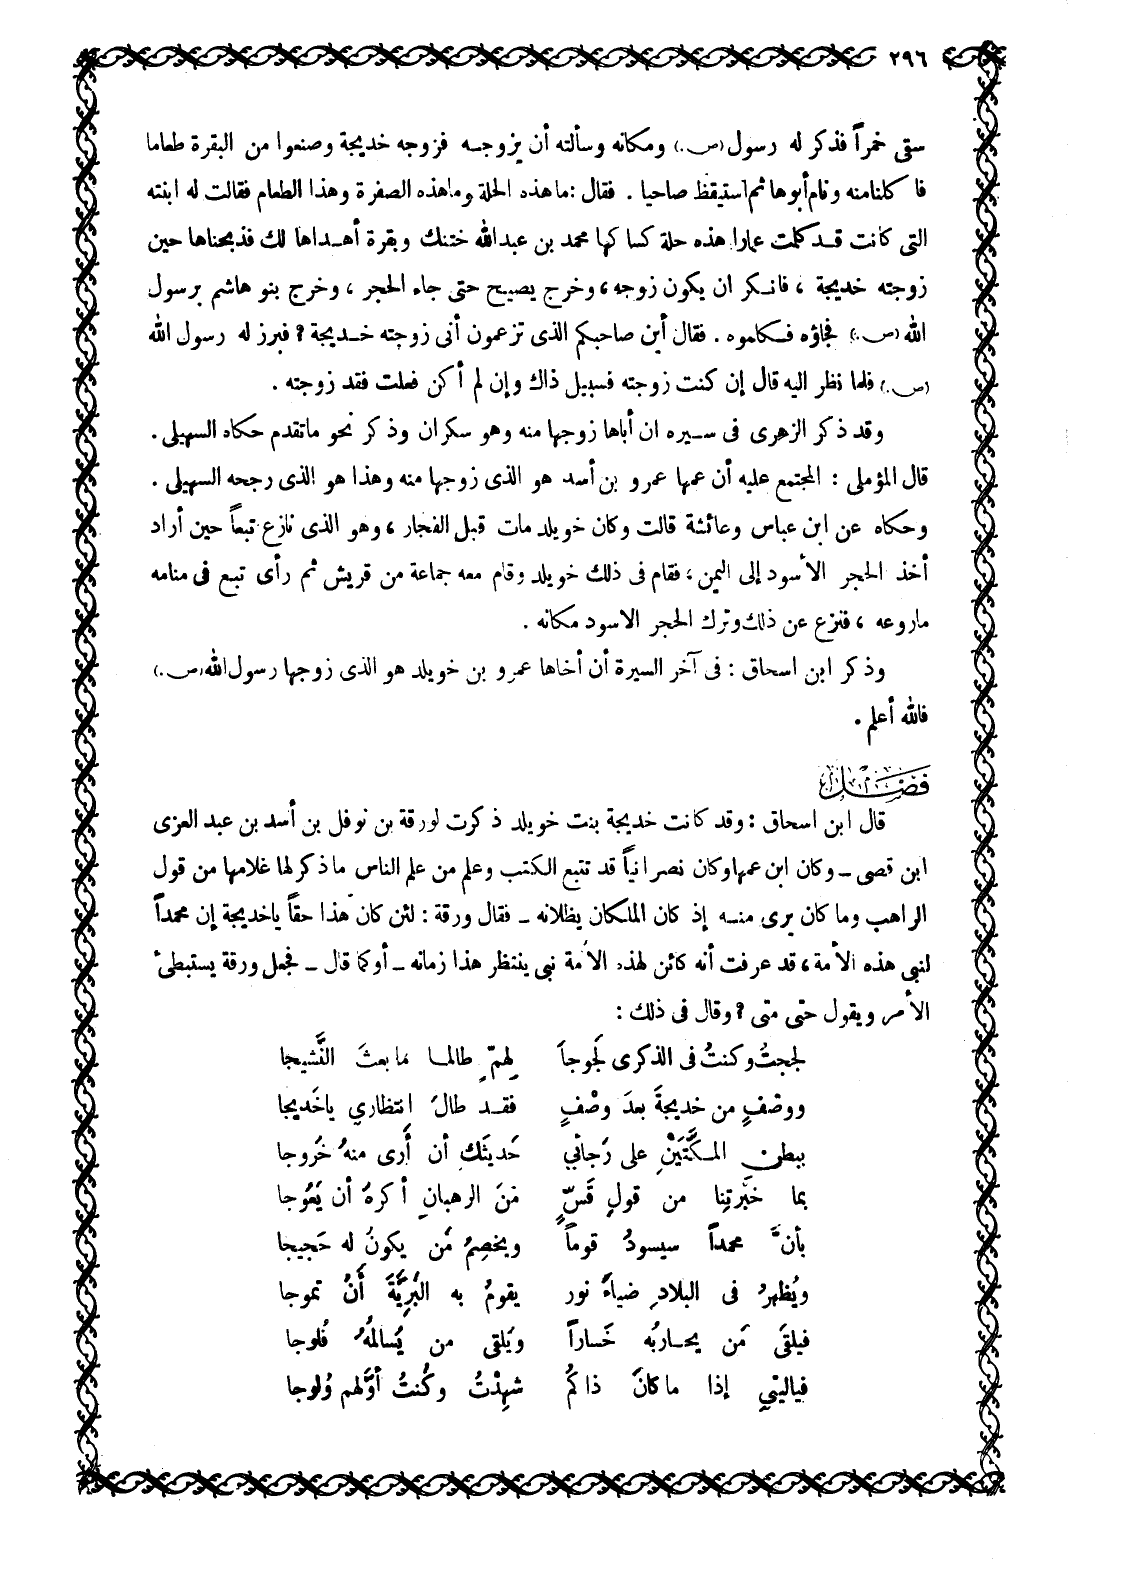 ٢٩٦
سقى خمراً فذكر له رسول (ص.) ومكانه وسألته أن يزوجه فزوجه خديجة وصنعوا من البقرة طعاما
فاكلنامنه ونام أبوها ثم استيقظ صاحيا . فقال : ماهذه الحلة وماهذه الصفرة وهذا الطعام فقالت له ابنته
التى كانت قد كلمت عمارا هذه حلة كساكها محمد بن عبدالله ختنك وبقرة أهداها لك فذبحناها حين
زوجته خديجة ، فانكر ان يكون زوجه ، وخرج يصيح حتى جاء الحجر ، وخرج بنو هاشم برسول
الله (ص.) فجاؤه فكلموه . فقال أين صاحبكم الذى تزعمون أنى زوجته خديجة ? فبرز له رسول الله
(ص.) فلما نظر اليه قال إن كنت زوجته فسبيل ذاك وإن لم أكن فعلت فقد زوجته .
وقد ذكر الزهرى فى سيره ان أباها زوجها منه وهو سكران وذكر نحو ماتقدم حكاه السهيلى .
قال المؤملى : المجتمع عليه أن عمها عمرو بن أسد هو الذى زوجها منه وهذا هو الذى رجحه السهيلى .
وحكاه عن ابن عباس وعائشة قالت وكان خويلد مات قبل الفجار ، وهو الذى نازع تبعاً حين أراد
أخذ الحجر الأسود إلى اليمن ، فقام فى ذلك خويلد وقام معه جماعة من قريش ثم رأى تبع فى منامه
ماروعه ، فنزع عن ذلك وترك الحجر الاسود مكانه .
وذكر ابن اسحاق : فى آخر السيرة أن أخاها عمرو بن خويلد هو الذى زوجها رسول الله (ص.)
فالله أعلم .
فصل
قال ابن اسحاق : وقد كانت خديجة بنت خويلد ذكرت لورقة بن نوفل بن أسد بن عبد العزى
ابن قصى ــ وكان ابن عمها وكان نصرانياً قد تتبع الكتب وعلم من علم الناس ماذكر لها غلامها من قول
الراهب وما كان يرى منه إذ كان الملكان يظلانه ــ فقال ورقة : لئن كان هذا حقاً ياخديجة إن محمداً
لنبى هذه الأمة ، قد عرفت أنه كائن لهذه الأمة نبى ينتظر هذا زمانه ــ أوكما قال ــ فجعل ورقة يستبطئ
الأمر ويقول حتى متى ? وقال فى ذلك :
لججتُ وكنتُ فى الذكرى لَجوجاً لِهمٍّ طالما مَا بعثَ النَّشيجا
ووصْفٍ من خديجةَ بعدَ وصْفٍ فقد طالَ انتظاري ياخَديجا
ببطنِ المكَّتَيْنِ على رَجائي حَديثَك أن أَرى منهُ خَروجا
بما خبَّرتِنا من قولِ قَسٍّ منَ الرهبانِ أكرهُ أن يَعُوجا
بأنَّ محمداً سيسودُ قوماً ويخصِمُ مَن يكونُ له حَجيجا
ويُظهرُ فى البلادِ ضياءَ نور يقومُ به البَرِيَّةَ أَنْ تموجا
فيلقَى مَن يحاربُه خَساراً ويَلقى من يُسالمُهُ فُلوجا
فياليتي إذا ماكانَ ذاكمُ شهِدْتُ وكُنتُ أوَّلهم وُلوجا